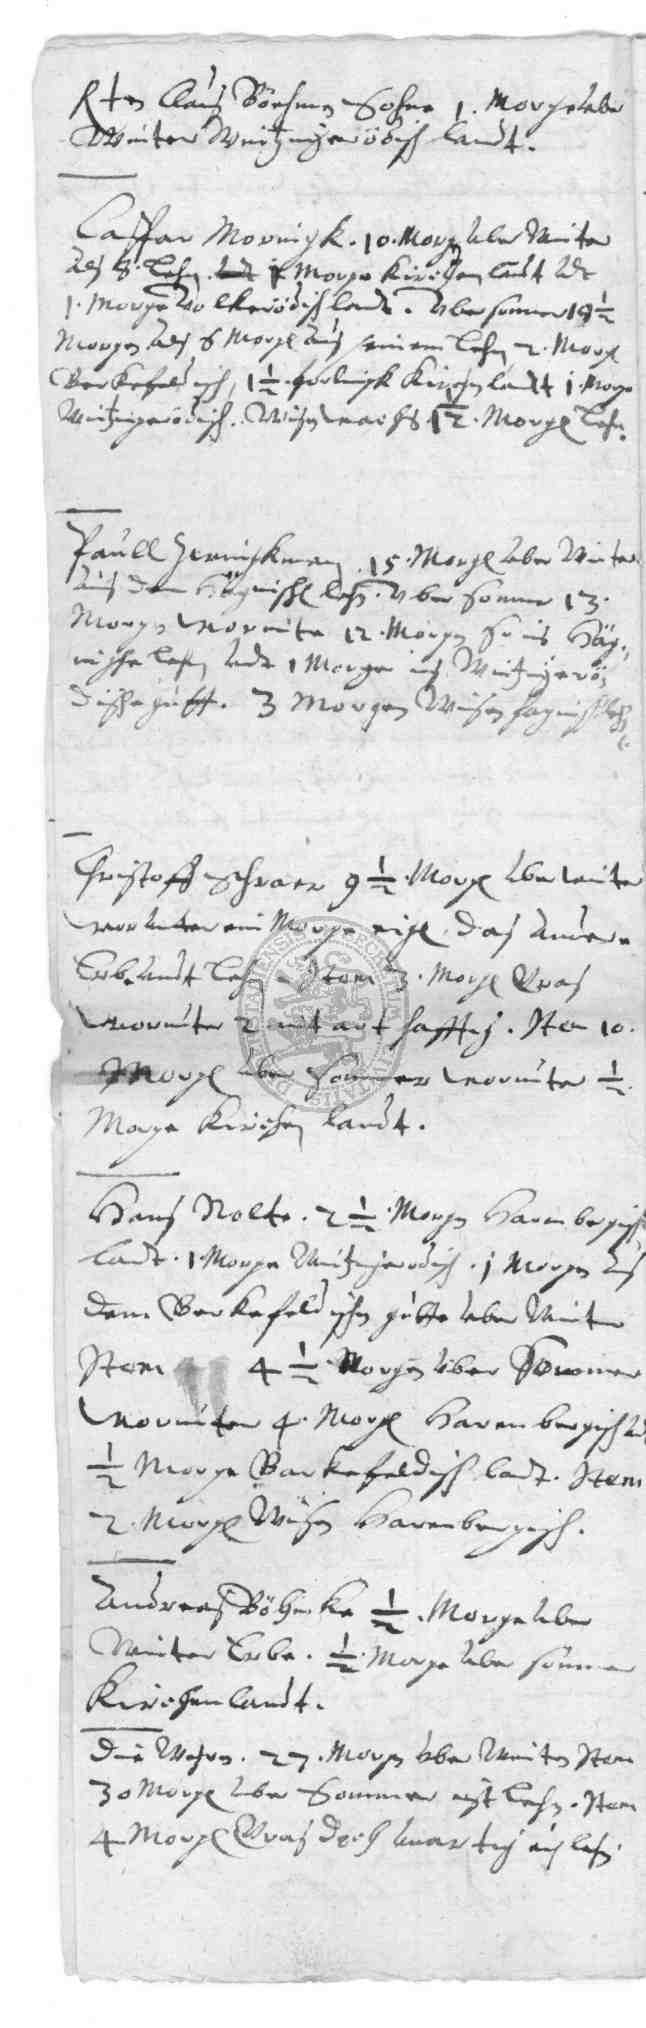 Claus Böhmen Sohne 1. Morge uber
Winter Wintzingerödisch landt.
Caspar Mornigk. 10. Morgen uber Winter
als 8. Lehn 1 Morge Kirchen landt
1. Morge Volkerödisch landt. Uber sommer 19 1/2
Morgen als 6 Morgen aus seinem Lehn 2. Morgen
Berkefeldisch, 1 1/2 Kirchen landt 1. Morge
Wintzingerödisch. Wisen wachs 1 1/2. Morgen Lehn.
Paull 15. Morgen uber Winter
aus dem lehn. Uber sommer 13.
Morgen worunter 12. Morgen
lehn und 1 Morgen ins Wintzingerö-
dische gutt. 3 Morgen Wisen
Christoff Schrader 9 1/2. Morgen uber winter
worunter ein Morge eigen. das ander
Erbe undt Lehn. Item 3. Morgen Gras
worunter 2 hafftig. Item 10.
Morgen uber Sommer worunter 1/2.
Morge Kirchen landt.
Hans Nolte. 2 1/2. Morgen Harenbergisch
landt. 1. Morge Wintzingerodisch. 1 Morgen aus
dem Berkefeldischen gutte uber Winter
Item 4 1/2. Morgen uber Sommer
worunter 4. Morgen Harenbergisch und
1/2 Morge Barkefeldisch landt. Item
2. Morgen Wisen Harenbergisch.
Andreas Böhnke 1/2. Morge uber
Winter Erbe. 1/2. Morge uber sommer
Kirchenlandt.
Die 27. Morgen uber Winter Item
30 Morgen uber Sommer ist Lehn. Item
4 Morgen Gras lehn.